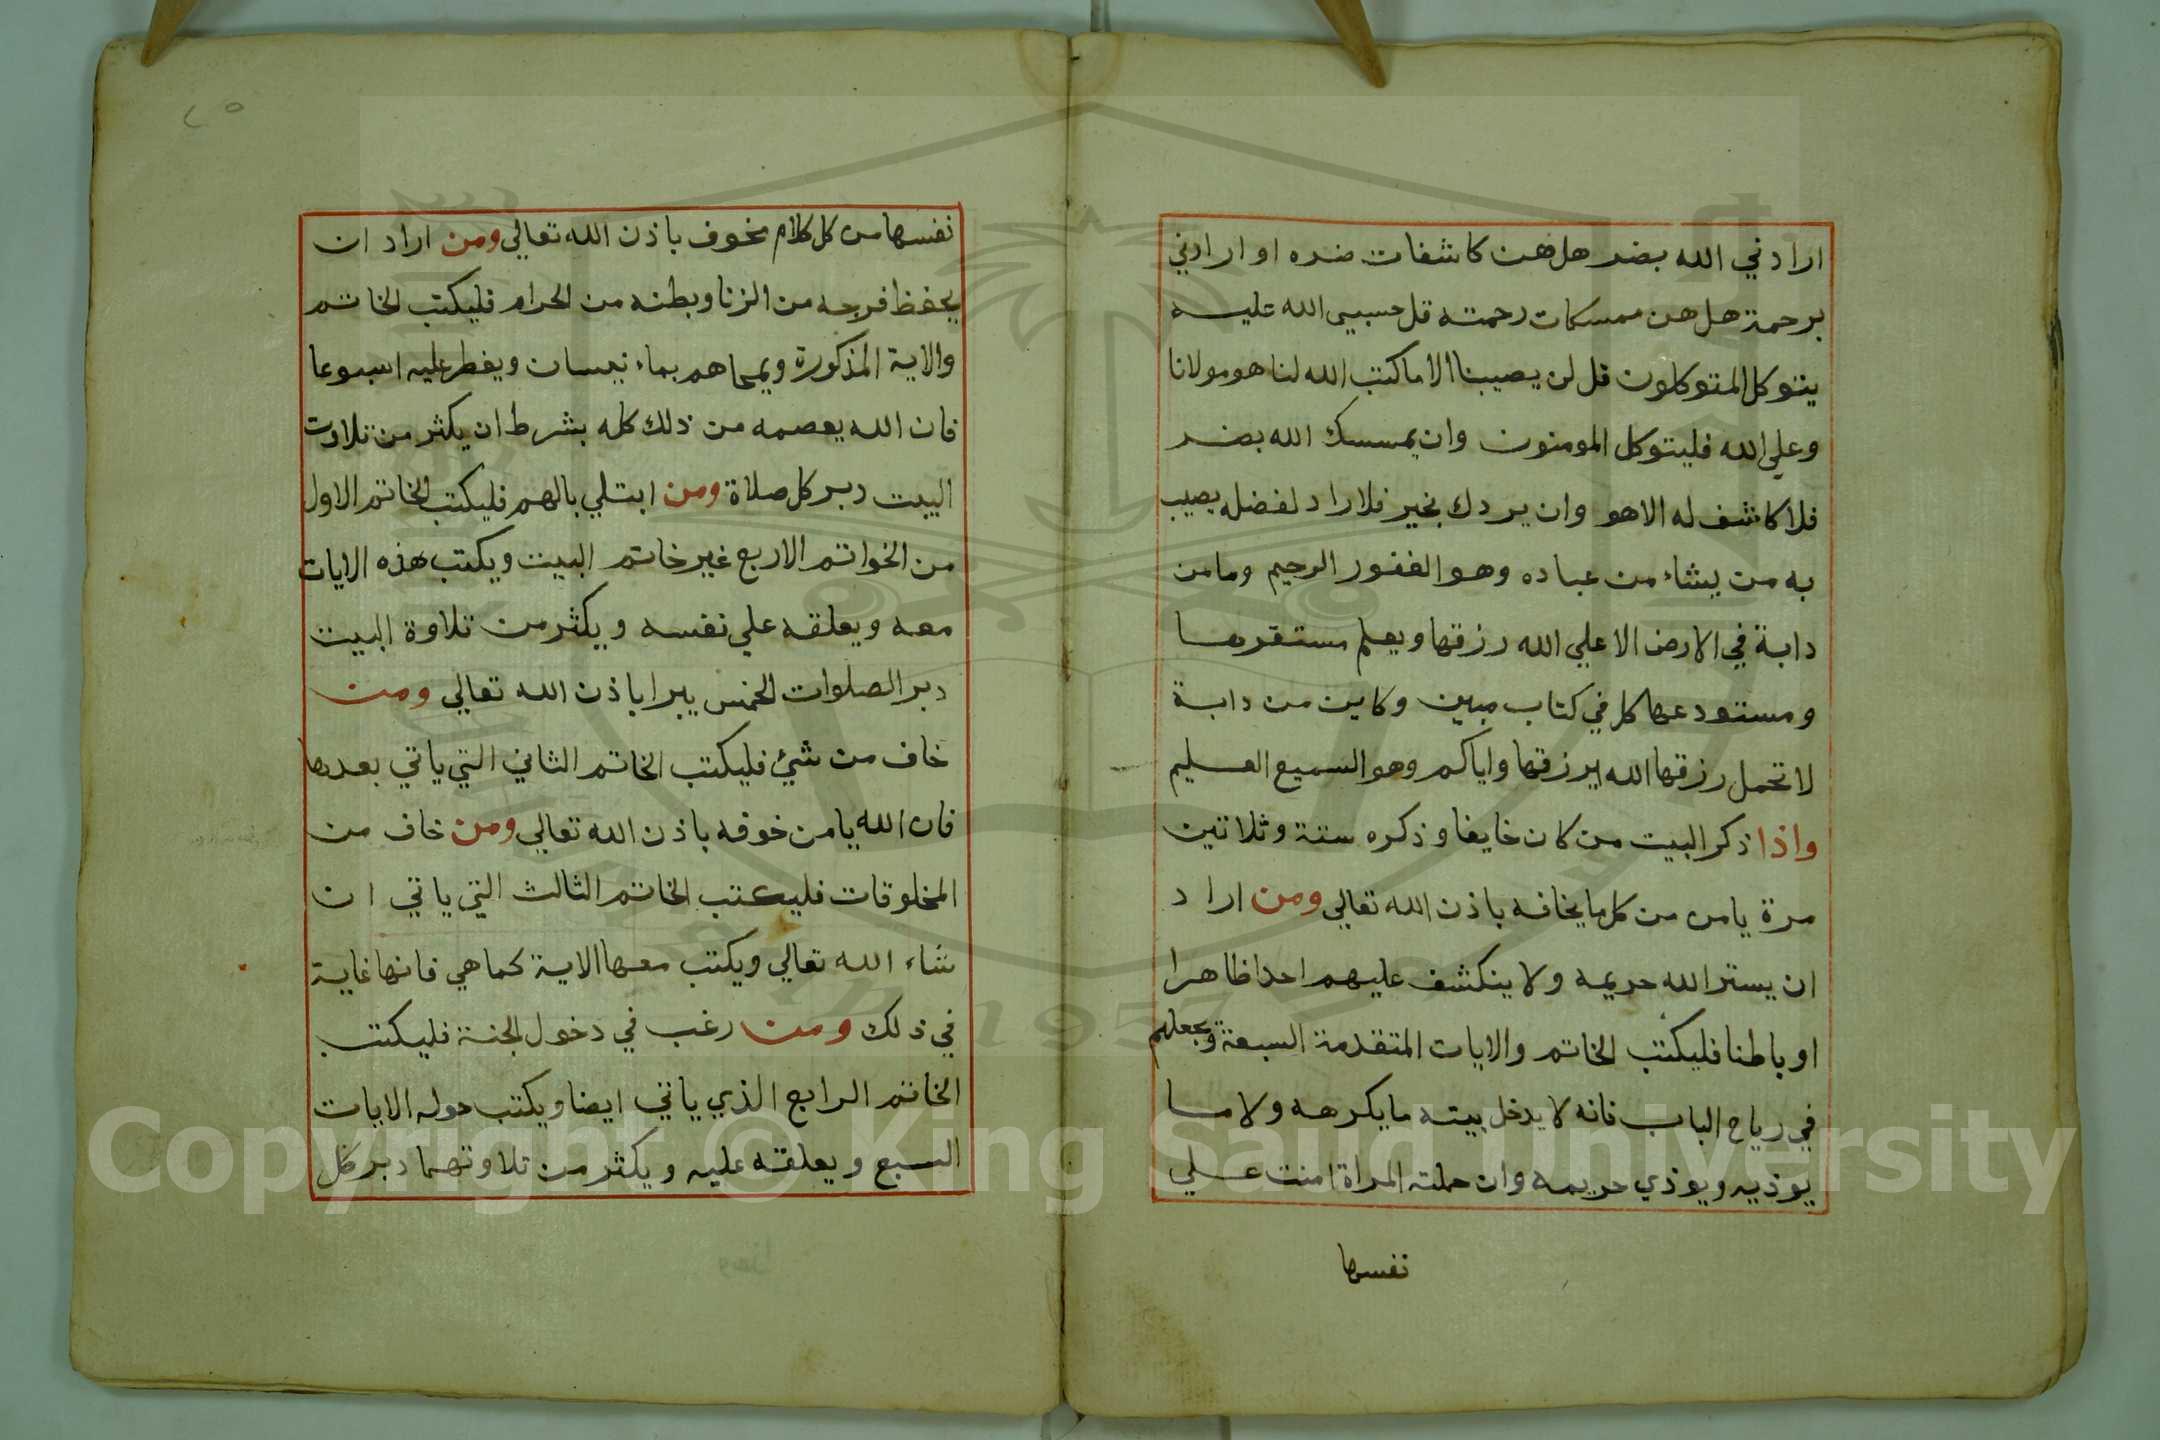 ارادني الله بضر هل هن كاشفات ضره او ارادني
برحمة هل هن ممسكات رحمته قل حسبي الله عليه
يتوكل المتوكلون قل لن يصيبنا الا ما كتب الله لنا هو مولانا
وعلي الله فليتوكل المومنون وان يمسسك الله بضر
فلا كاشف له الا هو وان يردك بخير فلا راد لفضله يصيب
به من يشاء من عباده وهو الغفور الرحيم وما من
دابة في الارض الا علي الله رزقها ويعلم مستقرها
ومستودعها كل في كتاب مبين وكاين من دابة
لا تحمل رزقها الله يرزقها واياكم وهو السميع العليم
واذا ذكر البيت من كان خايفا وذكره ستة وثلاثين
مرة يامن من كل ما يخافه باذن الله تعالي ومن اراد
ان يستر الله حريمه ولا ينكشف عليهم احدا ظاهرا
او باطنا فليكتب الخاتم والايات المتقدمة السبعة ويجعلهم
في رياح الباب فانه لا يدخل بيته ما يكرهه ولا ما
يوذيه ويوذي حريمه وان حملته المراة امنت علي
نفسها
٢٥
نفسها من كل كلام مخوف باذن الله تعالي ومن اراد ان
يحفظ فرجه من الزنا وبطنه من الحرام فليكتب الخاتم
والاية المذكورة ويمحاهم بماء نيسان ويفطر عليه اسبوعا
فان الله يعصمه من ذلك كله بشرط ان يكثر من تلاوت
البيت دبر كل صلاة ومن ابتلي بالهم فليكتب الخاتم الاول
من الخواتم الاربع غير خاتم البيت ويكتب هذه الايات
معه ويعلقه علي نفسه ويكثر من تلاوة البيت
دبر الصلوات الخمس يبرا باذن الله تعالي ومن
خاف من شيء فليكتب الخاتم الثاني التي ياتي بعدها
فان الله يامن خوفه باذن الله تعالي ومن خاف من
المخلوقات فليكتب الخاتم الثالث التي ياتي ان
شاء الله تعالي ويكتب معها الاية كما هي فانها غاية
في ذلك ومن رغب في دخول الجنة فليكتب
الخاتم الرابع الذي ياتي ايضا ويكتب حوله الايات
السبع ويعلقه عليه ويكثر من تلاوتهما دبر كل
Copyright © King Saud University